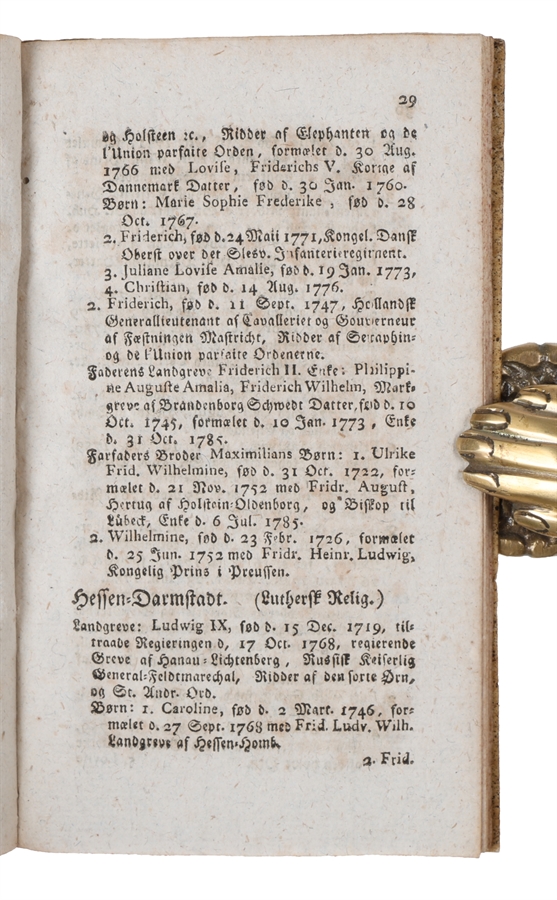 29
og Holsteen ꝛc., Ridder af Elephanten og de
l'Union parfaite Orden, formælet d. 30 Aug.
1766 med Lovise, Friderichs V. Konge af
Dannemark Datter, fød d. 30 Jan. 1760.
Børn: Marie Sophie Frederike, fød d. 28
Oct. 1767.
2. Friderich, fød d. 24 Maii 1771, Kongel. Dansk
Oberst over det Slesv. Infanterieregiment.
3. Juliane Lovise Amalie, fød d. 19 Jan. 1773,
4. Christian, fød d. 14 Aug. 1776.
2. Friderich, fød d. 11 Sept. 1747, Hollandsk
Generallieutenant af Cavalleriet og Gouverneur
af Fæstningen Mastricht, Ridder af Seraphin-
og de l'Union parfaite Ordenerne.
Faderens Landgreve Friderich II. Enke: Philippi-
ne Auguste Amalia, Friderich Wilhelm, Mark-
greve af Brandenborg Schwedt Datter, fød d. 10
Oct. 1745, formælet d. 10 Jan. 1773, Enke
d. 31 Oct. 1785.
Farfaders Broder Maximilians Børn: 1. Ulrike
Frid. Wilhelmine, fød d. 31 Oct. 1722, for-
mælet d. 21 Nov. 1752 med Fridr. August,
Hertug af Holstein-Oldenborg, og Biskop til
Lübeck, Enke d. 6 Jul. 1785.
2. Wilhelmine, fød d. 23 Febr. 1726, formælet
d. 25 Jun. 1752 med Fridr. Heinr. Ludwig,
Kongelig Prins i Preussen.
Hessen-Darmstadt. (Luthersk Relig.)
Landgreve: Ludwig IX, fød d. 15 Dec. 1719, til-
traade Regieringen d, 17 Oct. 1768, regierende
Greve af Hanau-Lichtenberg, Russisk Keiserlig
General-Feldtmarechal, Ridder af den sorte Ørn,
og St. Andr. Ord.
Børn: 1. Caroline, fød d. 2 Mart. 1746, for-
mælet d. 27 Sept. 1768 med Frid. Ludv. Wilh.
Landgreve af Hessen-Homb.
2. Frid.